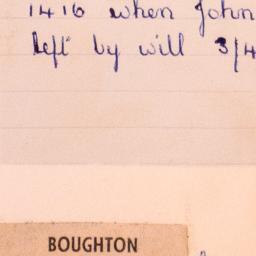 1416 when John
left by will 3/4
BOUGHTON